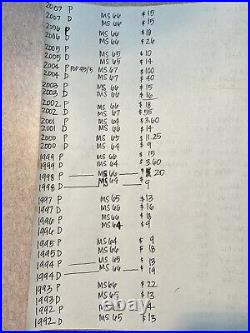 2007 P MS 66 $ 15
2007 D MS 66 $ 15
2006 P MS 66 $
2006 D MS 66 $ 26
2005 P MS 65 $ 10
2005 D MS 65 $ 14
2004 P MS 67 $ 100
2004 D MS 67 $ 40
2003 P MS 66 $ 15
2003 D MS 66 $ 16
2002 P MS 66 $ 18
2002 D MS 67 $ 55
2001 P MS 64 $ 3.60
2001 D MS 66 $ 14
2000 P MS 65 $ 11.25
2000 D MS 64 $ 9
1999 P MS 66 $ 15
1999 D MS 64 $ 3.60
1998 P MS 66 $ 20
1998 D MS 64 $ 9
1997 P MS 65 $ 13
1997 D MS 65 $ 16
1996 P MS 66 $ 18
1996 D MS 64 $ 9
1995 P MS 64 $ 9
1995 D MS 66 $ 18
1994 P MS 65 $ 13
1994 D MS 66 $ 19
1993 P MS 66 $ 22
1993 D MS 65 $ 13
1992 P MS $ 4
1992 D MS 65 $ 13